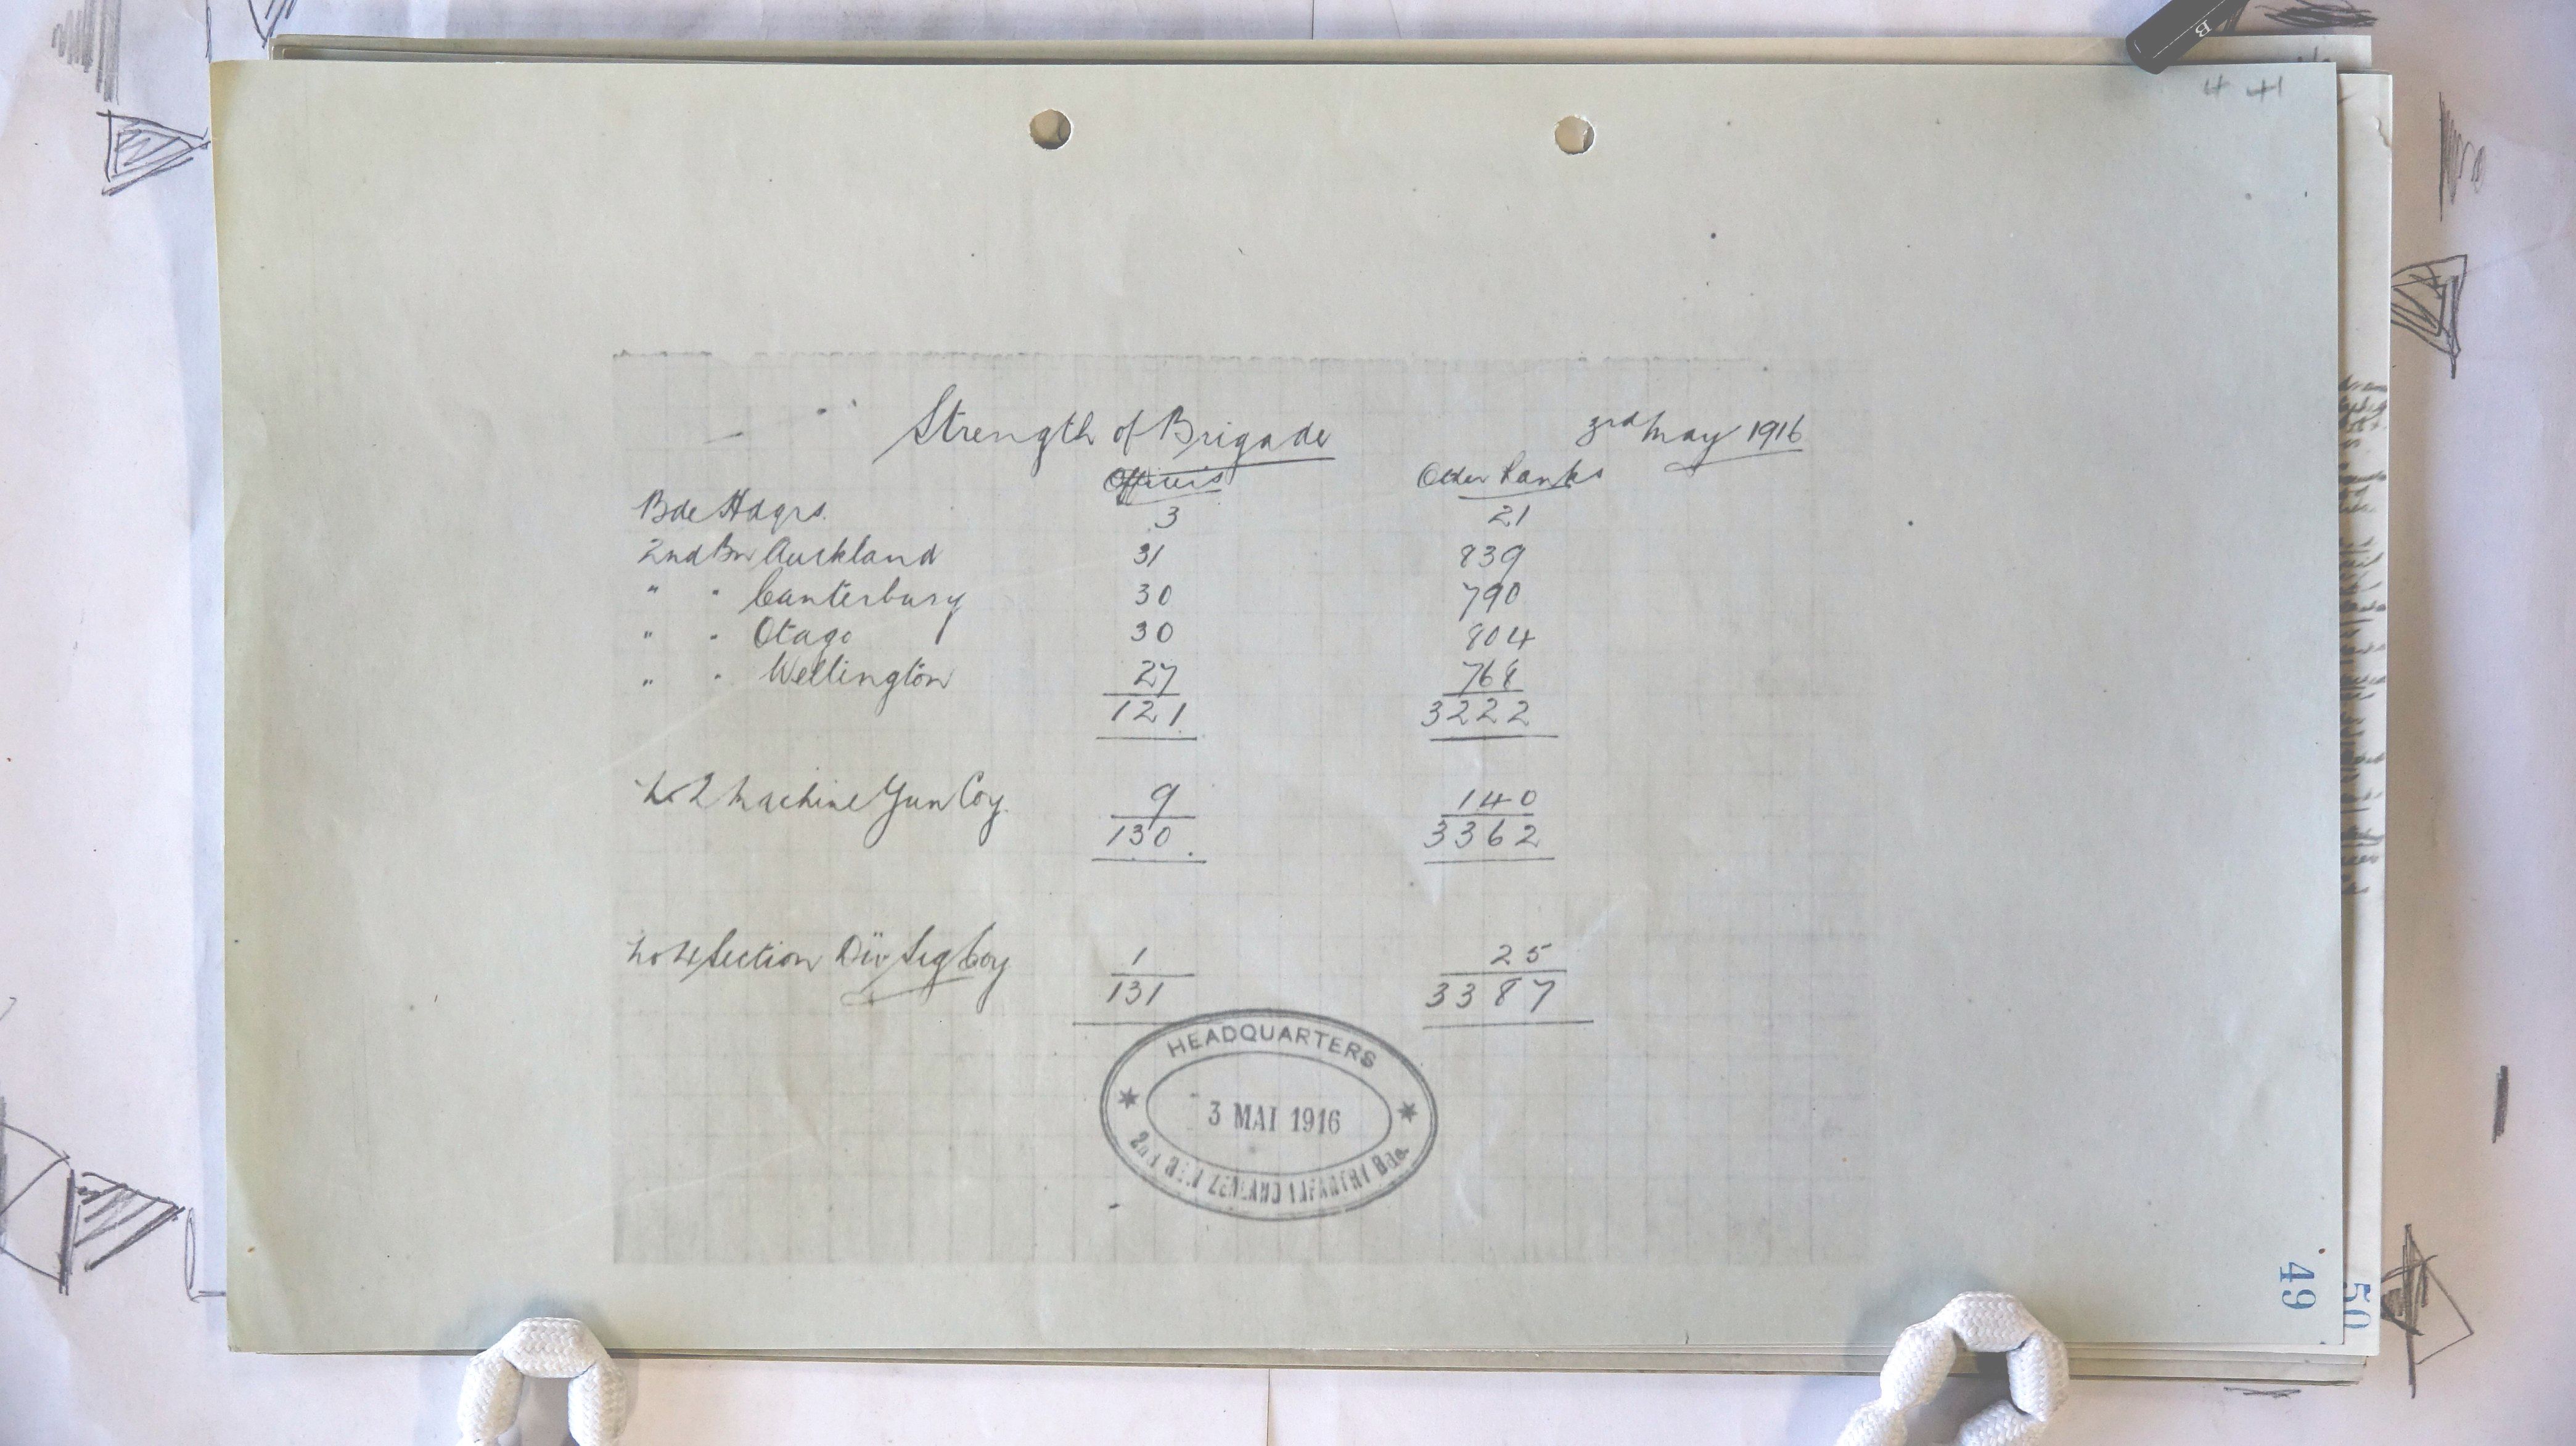 4 41
Strength of Brigade 3rd May 1916
Officers Other Ranks
Bde Hdqrs. 3 21
2nd Bn Auckland 31 839
" " Canterbury 30 790
" " Otago 30 804
" " Wellington 27 768
121 3222
No 2 Machine Gun Coy. 9 140
130 3362
No 4 Section Div Sig Coy 1 25
131 3387
HEADQUARTERS
3 MAI 1916
2nd NEW ZEALAND INFANTRY Bde.
49
50
B